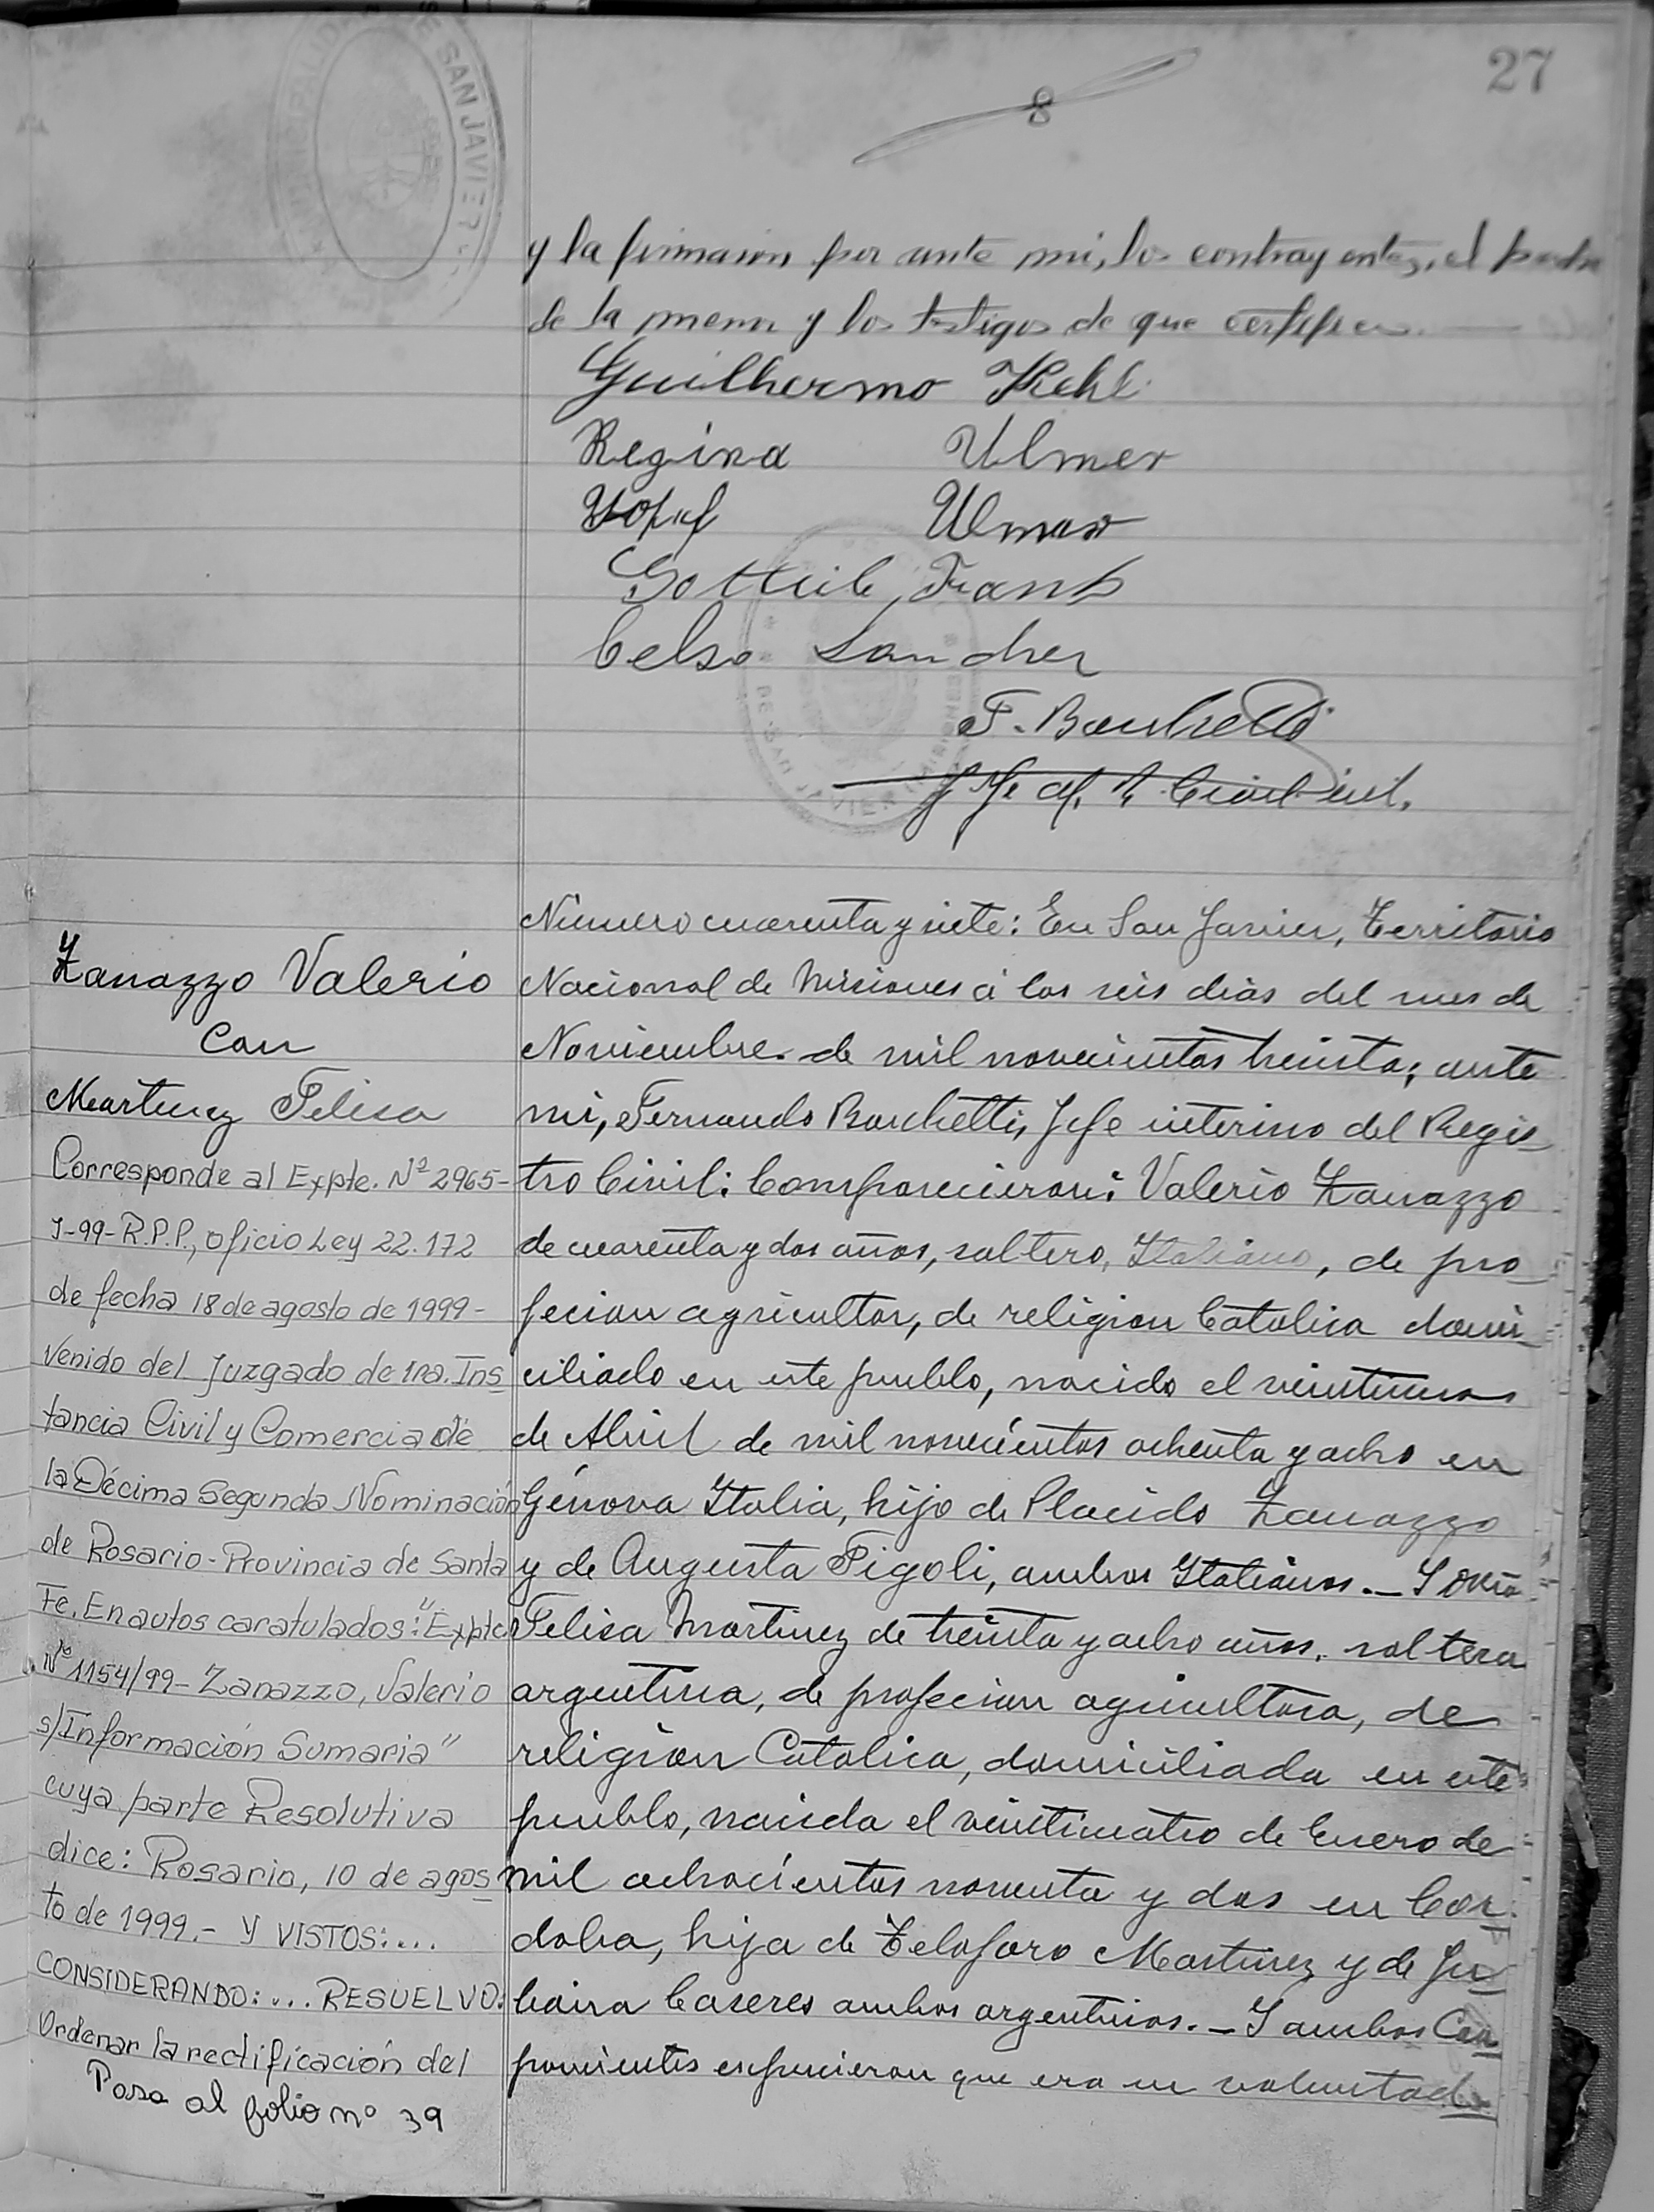 27
8
MUNICIPALIDAD DE SAN JAVIER
y la firmaron por ante mi, los contrayentes, el padre
de la menor y los testigos de que certifico.
Guilhermo Kehl
Regina Ulmer
Josef Ulmer
Gottlieb Frank
Celso Sandrer
F. Barchetti
DE SAN JAVIER (MISIONES)
Zanazzo Valerio
Con
Martinez Felisa
Corresponde al Expte. Nº 2965-
J-99-R.P.P., oficio Ley 22.172
de fecha 18 de agosto de 1999-
venido del Juzgado de 1ra. Ins
tancia Civil y Comercia de
la Décima Segunda Nominación
de Rosario-Provincia de Santa
Fe. En autos caratulados: "Expte
Nº 1154/99- Zanazzo, Valerio
s/Información Sumaria"
cuya parte Resolutiva
dice: Rosario, 10 de agos
to de 1999.- Y VISTOS:...
CONSIDERANDO:... RESUELVO:
Ordenar la rectificación del
Pasa al folio nº 39
Número cuarenta y siete: En San Javier, Territorio
Nacional de Misiones á los seis dias del mes de
Noviembre de mil novecientos treinta; ante
mi, Fernando Barchetti, Jefe interino del Regis
tro Civil: Comparecieron: Valerio Zanazzo
de cuarenta y dos años, soltero, Italiano, de pro
fecion agricultor, de religion Catolica domi
ciliado en este pueblo, nacido el veintiuno
de Abril de mil novecientos ochenta y ocho en
Génova Italia, hijo de Placido Zanazzo
y de Augusta Pigoli, ambos Italianos.- Y Doña
Felisa Martinez de treinta y ocho años, soltera
argentina, de profecion agricultora, de
religion Catolica, domiciliada en este
pueblo, nacida el veinticuatro de Enero de
mil ochocientos noventa y dos en Cor
doba, hija de Telesforo Martinez y de
Caseres ambos argentinos.- Y ambos Con
ponientes expucieron que era su voluntad